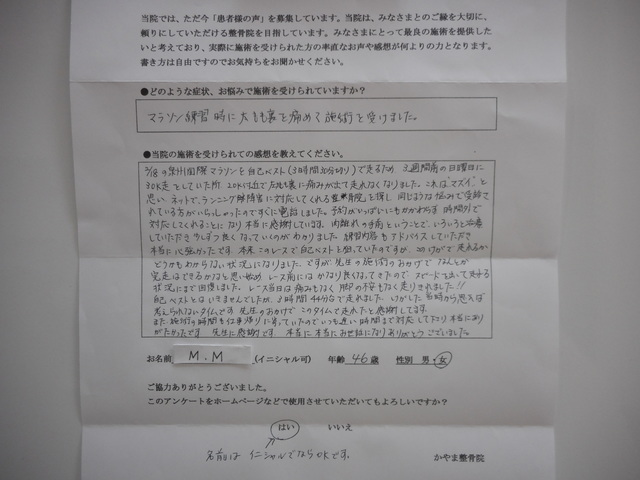 当院では、ただ今「患者様の声」を募集しています。当院は、みなさまとのご縁を大切に、
頼りにしていただける整骨院を目指しています。みなさまにとって最良の施術を提供した
いと考えており、実際に施術を受けられた方の率直なお声や感想が何よりの力となります。
書き方は自由ですのでお気持ちをお聞かせください。
●どのような症状、お悩みで施術を受けられていますか？
マラソン練習時に太もも裏を痛めて施術を受けました。
●当院の施術を受けられての感想を教えてください。
2/18の泉州国際マラソンを自己ベスト(3時間30分切り)で走るため 3週間前の日曜日に
30K走をしていた所 20K以上で太もも裏に痛みが出て走れなくなりました。これは"マズイ"と
思い ネットで、ランニング障害に対応してくれる整骨院を探し 同じような悩みで受診さ
れている方がいらっしゃったのですぐに電話しました。予約がいっぱいにもかかわらず 時間外で
対応してくれることになり本当に感謝しています。肉離れの手前ということで、いろいろと治療
していただき 少しずつ良くなっていくのがわかりました 練習内容も アドバイスしていただき
本当に心強かったです。本来 このレースで自己ベストを狙っていたのですが、このケガで走れるか
どうかもわからない状況になりました。ですが先生の施術のおかげで なんとか
完走はできるかなと思い始め レース前には かなり良くなってきたので スピードを
状況にまで回復しました。レース当日は痛みもなく 脚の不安もなく走りきれました!!
自己ベストとはいきませんでしたが、3時間44分台で走れました いためた当時から思えば
考えられないタイムです 先生のおかげで このタイムで走れたと感謝してます。
また施術の時間も仕事帰りに寄っていたのでいつも遅い時間まで対応して下さり 本当にあり
がたかったです 先生に感謝です。本当に 本当にお世話になりありがとうございました。
お名前 M.M (イニシャル可) 年齢 46歳 性別 男・女
ご協力ありがとうございました。
このアンケートをホームページなどで使用させていただいてもよろしいですか？
はい いいえ
名前は イニシャルでならOKです。
かやま整骨院